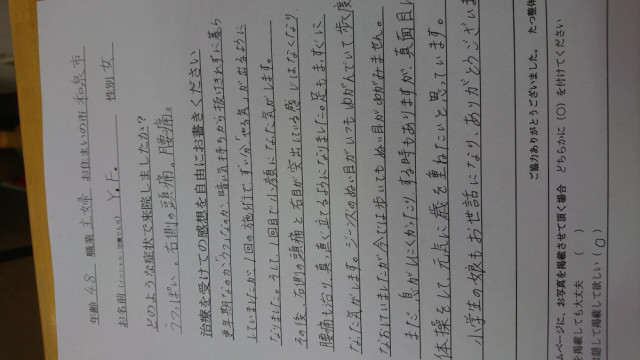 年齢 48 職業 主婦 お住まいの市 和泉市
お名前 Y.F. 性別 女
どのような症状で来院しましたか?
うつっぽい。右側の頭痛。腰痛。
治療を受けての感想を自由にお書きください
更年期なのか、うつなのか、暗い気持ちから抜けきれずに暮ら
していましたが、1回の施術でずい分「やる気」が出るように
なりました。そして1回目で小顔になった気がします。
その後、右側の頭痛と右目が突出している感じはなくなり、
腰痛も治り、真っ直ぐ立てるようになりました。足もまっすぐに
なった気がします。ジーンズのぬい目がいつもゆがんでいて 歩く度
なおしていましたが 今では歩いてもぬい目がゆがみません。
また、身がしんどくかったりする時もありますが、真面目に
体操をして、元気に歳を重ねたいと思っています。
小学生の娘もお世話になり、ありがとうございま
ご協力ありがとうございました。 たつ整体
ムページに、お写真を掲載させて頂く場合 どちらかに(○)を付けてください
を掲載しても大丈夫 ( )
隠して掲載して欲しい (○)